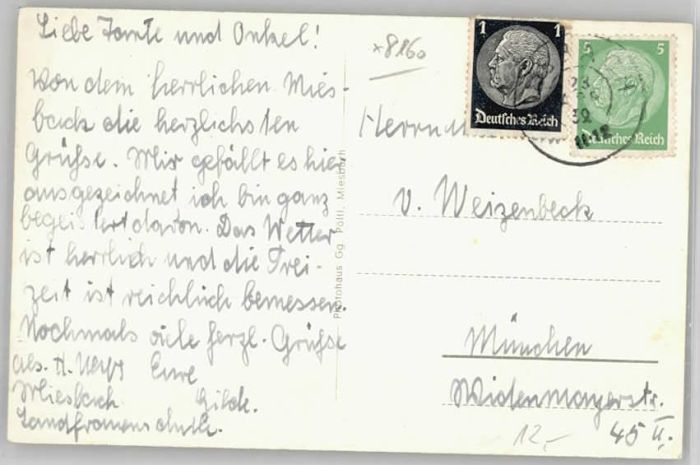 Liebe Tante und Onkel!
Von dem herrlichen Mies-
bach die herzlichsten
Grüsse. Mir gefällt es hier
ausgezeichnet ich bin ganz
begeistert davon. Das Wetter
ist herrlich und die Frei-
zeit ist reichlich bemessen.
Nochmals viele herzl. Grüsse
Eure
Miesbach Gilde.
Landfrauenschule.
Photohaus Gg. Pöltl, Miesbach
x8160
1 1
Deutsches Reich
5 5
Deutsches Reich
Herrn
v. Weizenbeck
München
Widenmayerstr.
45 II.
12,-